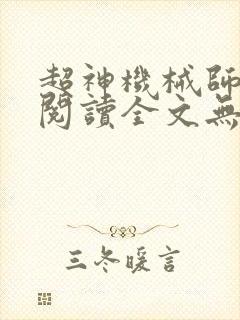 超神機械師
閱讀全文無
三冬暖言